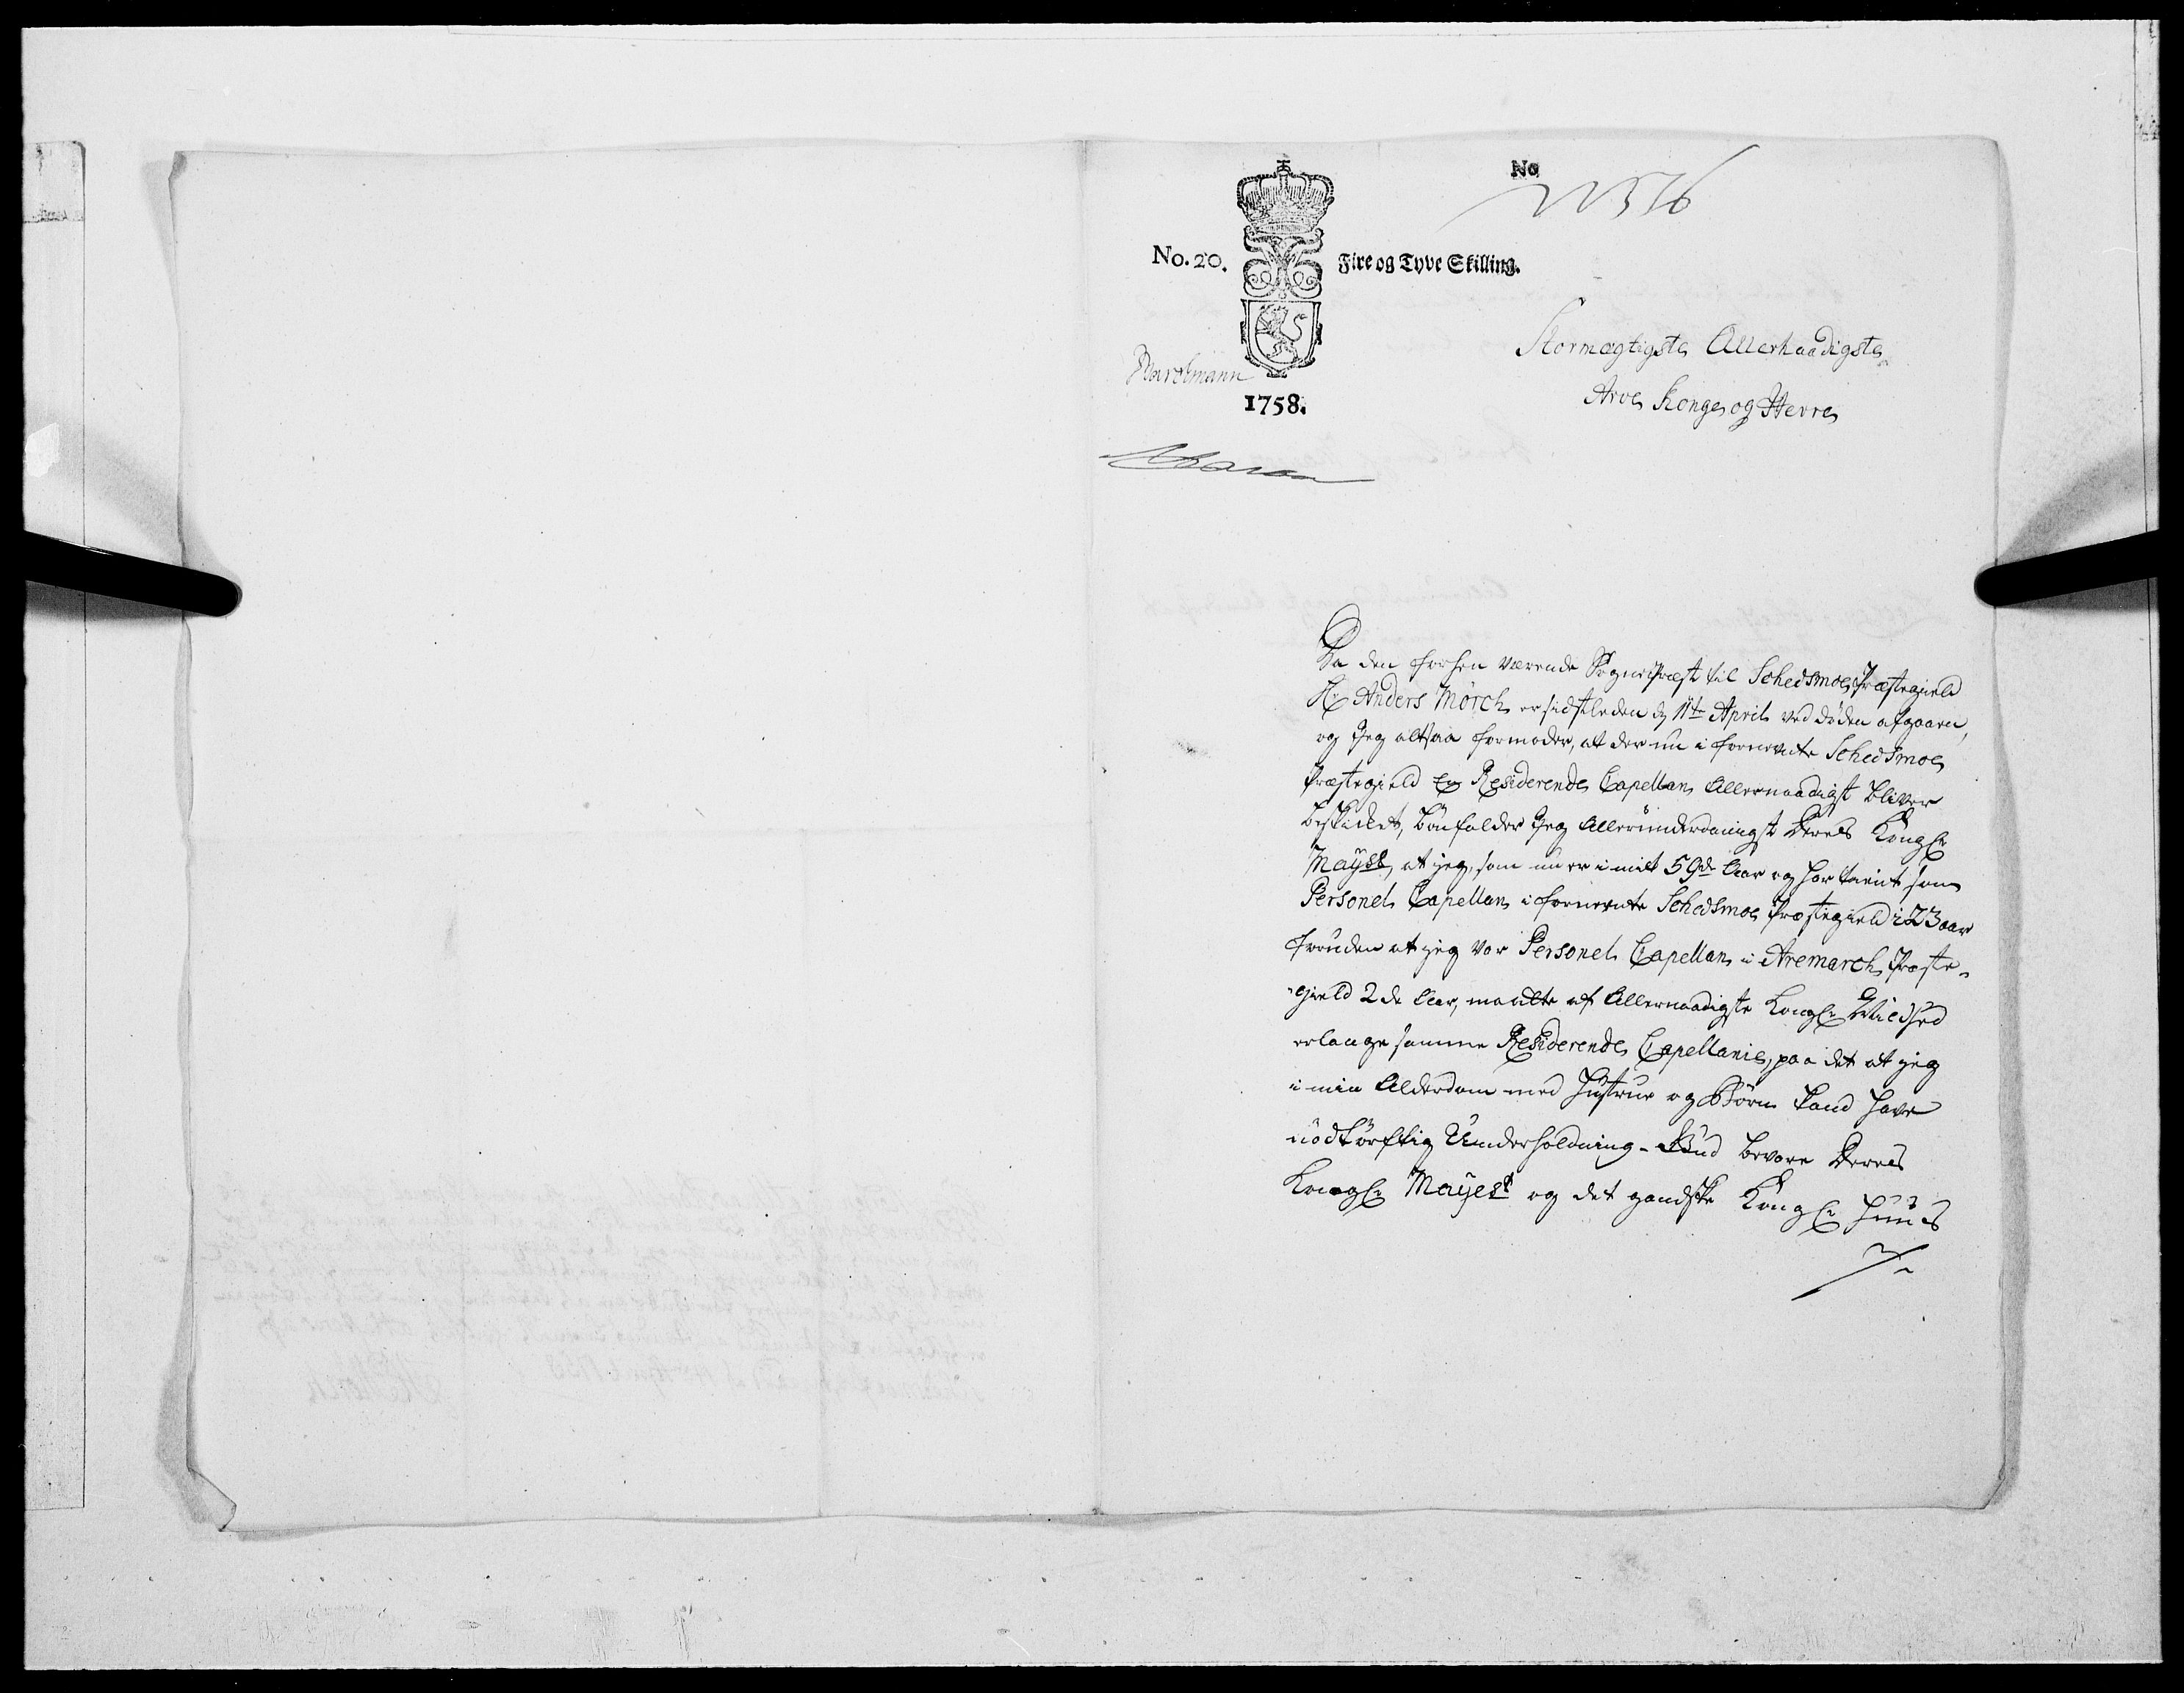 No
22576
No. 20.
Fire og Tyve Skilling.
1758.
Stormægtigste Allernaadigste
Arve Konge og Herre
Da den forhen værende Sognepræst til Schedsmoe Præstegield
Hr Anders Mörch er sidstleden d 11te April ved döden afgaaen,
og Jeg altsaa formoder, at der nu i fornevnte Schedsmoe
Præstegield En Residerende Capellan Allernaadigst bliver
beskicket, bönfalder Jeg Allerunderdanigst Deres Kongl
Mayst, at jeg, som nu er i mit 59de Aar og har tient som
Personel Capellan i fornevnte Schedsmoe Præstegield i 23 aar
foruden at jeg var Personel Capellan i Aremarch Præste-
gield 2de Aar, maatte af Allernaadigste Kongl: Mildhed
erlange samme Residerende Capellanie, paa det at jeg
i min Alderdom med Hustrue og Börn kand have
nödtörftig Underholdning. Gud bevare Deres
Kongl: Mayest og det gandske Kongl: Huus